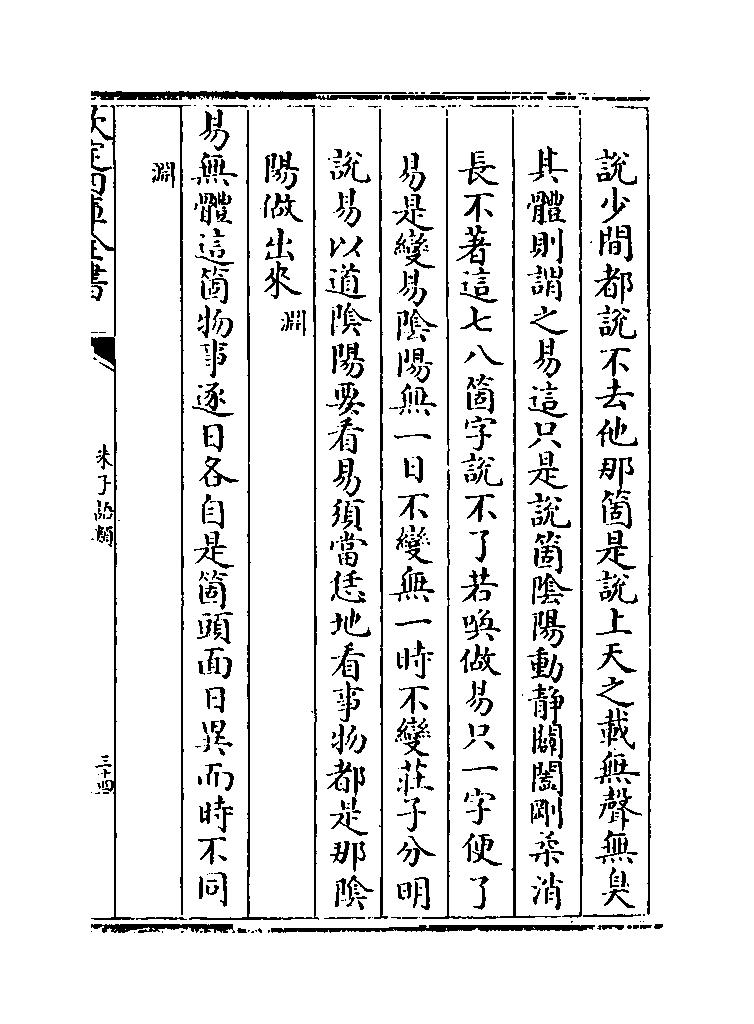 說少間都說不去他那箇是說上天之載無聲無臭
其體則謂之易這只是說箇陰陽動静闢闔剛柔消
長不著這七八箇字說不了若喚做易只一字便了
易是變易陰陽無一日不變無一時不變莊子分明
說易以道陰陽要看易須當恁地看事物都是那陰
陽做出來 淵
易無體這箇物事逐日各自是箇頭面日異而時不同
淵
欽定四庫全書
朱子語類
三十四